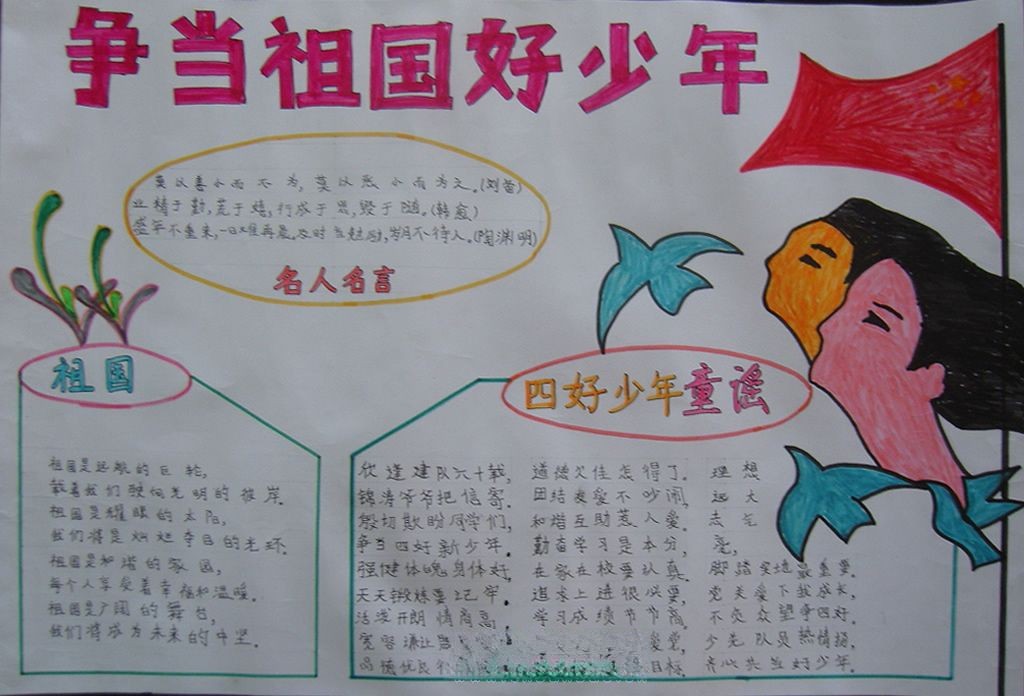 争当祖国好少年
莫以善小而不为,莫以恶小而为之。(刘备)
业精于勤,荒于嬉,行成于思,毁于随。(韩愈)
盛年不重来,一日难再晨。及时当勉励,岁月不待人。(陶渊明)
名人名言
祖国
祖国是远航的巨轮,
载着我们驶向光明的彼岸.
祖国是耀眼的太阳,
我们将是灿烂夺目的光环.
祖国是和谐的家园,
每个人享受着幸福和温暖.
祖国是广阔的舞台,
我们将成为未来的中坚.
四好少年童谣
欣逢建队六十载,
锦涛爷爷把信寄.
殷切欺盼同学们,
争当四好新少年.
强健体魄身体好,
天天锻炼要记牢.
活泼开朗情商高,
宽容谦让
品德优良
道德欠佳怎得了.
团结友爱不吵闹,
和谐互助惹人爱.
勤奋学习是本分,
在家在校要认真.
追求上进很必要,
学习成绩节节高.
爱党,
目标.
理想
远大
志气
高,
脚踏实地最重要.
党关爱下我成长,
不负众望争四好.
少先队员热情扬,
齐心共当好少年.